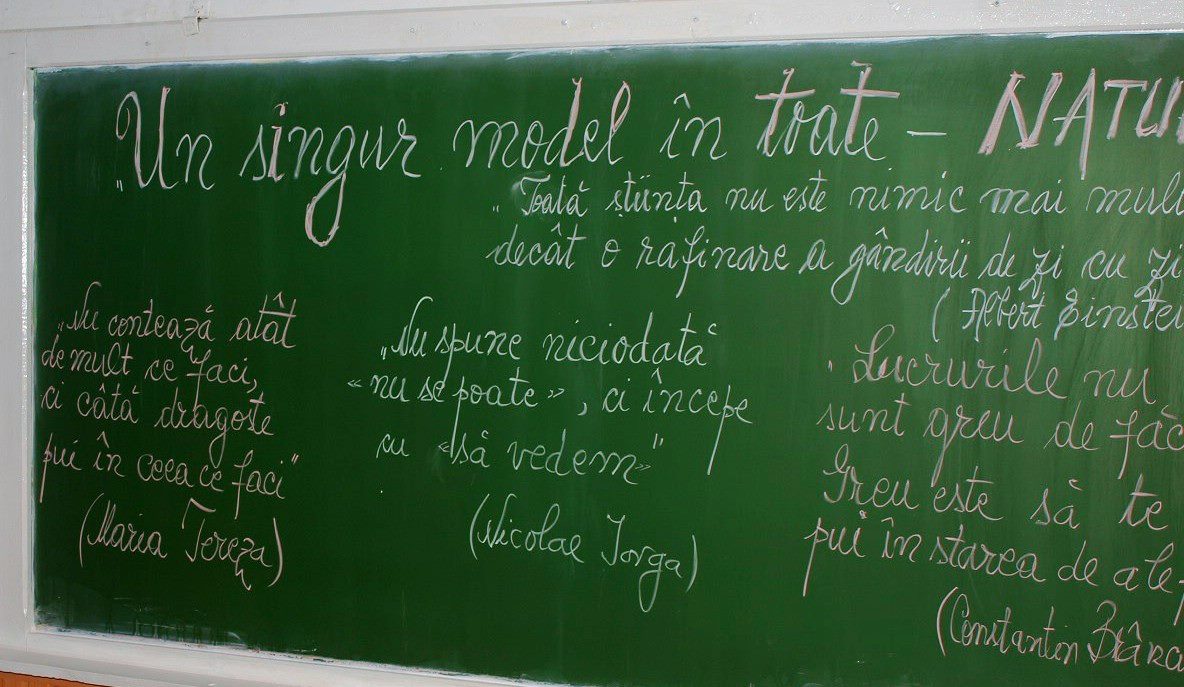 „Un singur model în toate – NATU
„Toată știința nu este nimic mai mult
decât o rafinare a gândirii de zi cu zi
(Albert Einstei
„Nu contează atât
de mult ce faci,
ci câtă dragoste
pui în ceea ce faci"
(Maria Tereza)
„Nu spune niciodată
«nu se poate», ci începe
cu «să vedem»"
(Nicolae Iorga)
„Lucrurile nu
sunt greu de făc
Greu este să te
pui în starea de a le
(Constantin Brânc